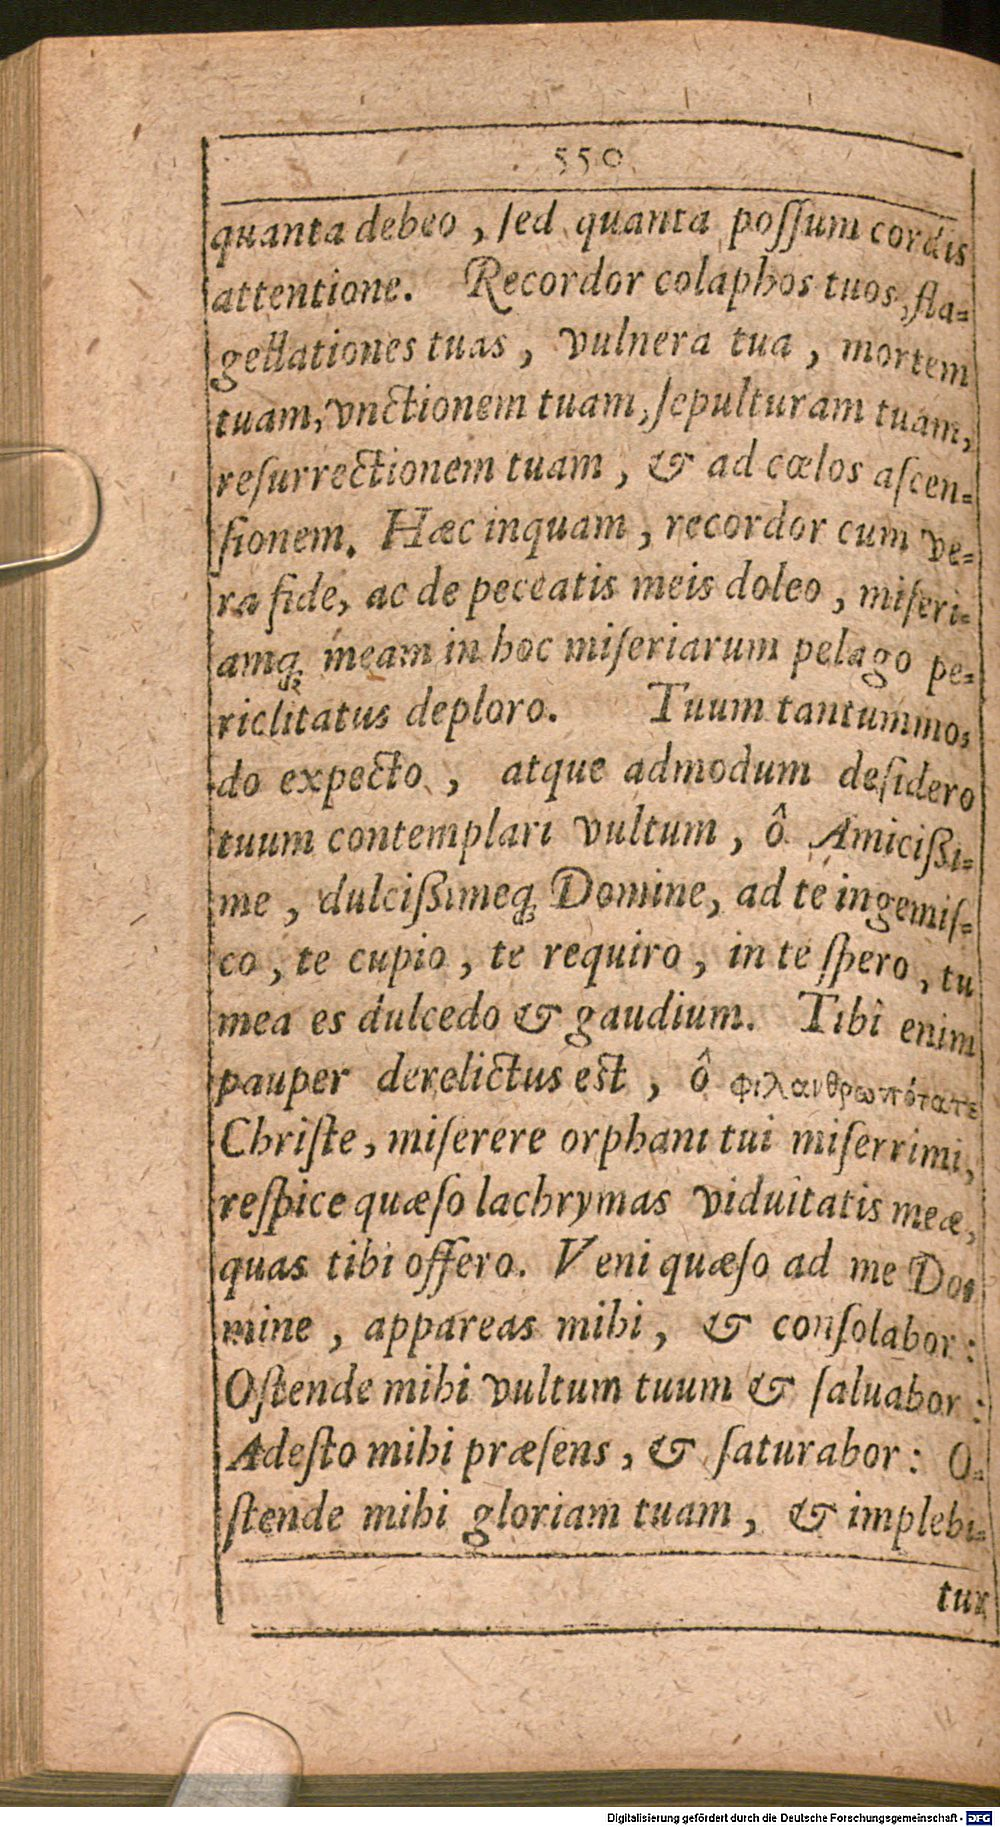 550
quanta debeo, ſed quanta poſſum cordis
attentione. Recordor colaphos tuos, fla-
gellationes tuas, vulnera tua, mortem
tuam, vnctionem tuam, ſepulturam tuam,
reſurrectionem tuam, & ad cœlos aſcen-
ſionem. Hæc inquam, recordor cum ve-
ra fide, ac de peccatis meis doleo, miſeri-
amq́; meam in hoc miſeriarum pelago pe-
riclitatus deploro. Tuum tantummo-
do expecto, atque admodum deſidero
tuum contemplari vultum, ô Amicißi-
me, dulcißimeq́; Domine, ad te ingemiſ-
co, te cupio, te requiro, in te ſpero, tu
mea es dulcedo & gaudium. Tibi enim
pauper derelictus eſt, ô φιλανθρωπότατε
Chriſte, miſerere orphani tui miſerrimi,
reſpice quæſo lachrymas viduitatis meæ,
quas tibi offero. Veni quæſo ad me Do-
mine, appareas mihi, & conſolabor:
Oſtende mihi vultum tuum & ſaluabor:
Adeſto mihi præſens, & ſaturabor: O-
ſtende mihi gloriam tuam, & implebi-
tur
Digitalisierung gefördert durch die Deutsche Forschungsgemeinschaft - DFG